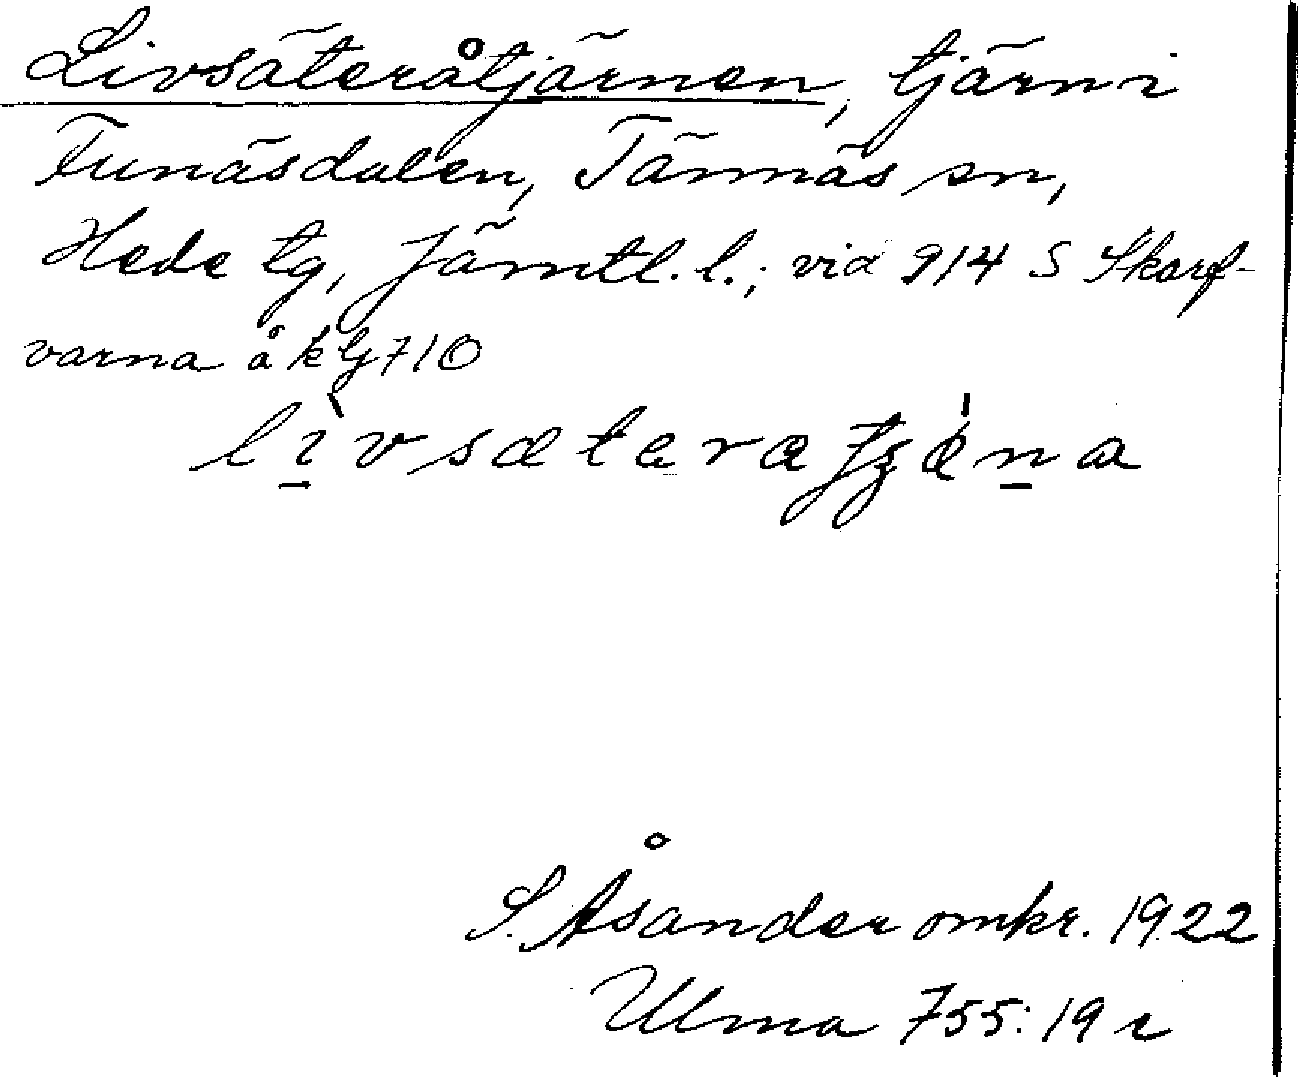 Livsäteråtjärnen, tjärn i
Funäsdalen, Tännäs sn,
Hede tg, Jämtl. l.; vid 914 S Skarf-
varna å kbl 710
lìvsætəræ ɟʒǽna
S. Åsander omkr. 1922
Ulma 755:19 r